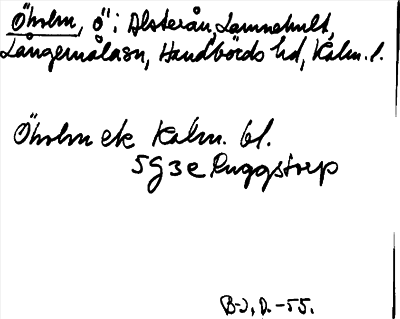 Öholm, ö i Alsterån, Lamnehult,
Långemåla sn, Handbörds hd, Kalm. l.
Öholm ek Kalm. bl.
5G3e Ruggstorp
B-J, D. -55.